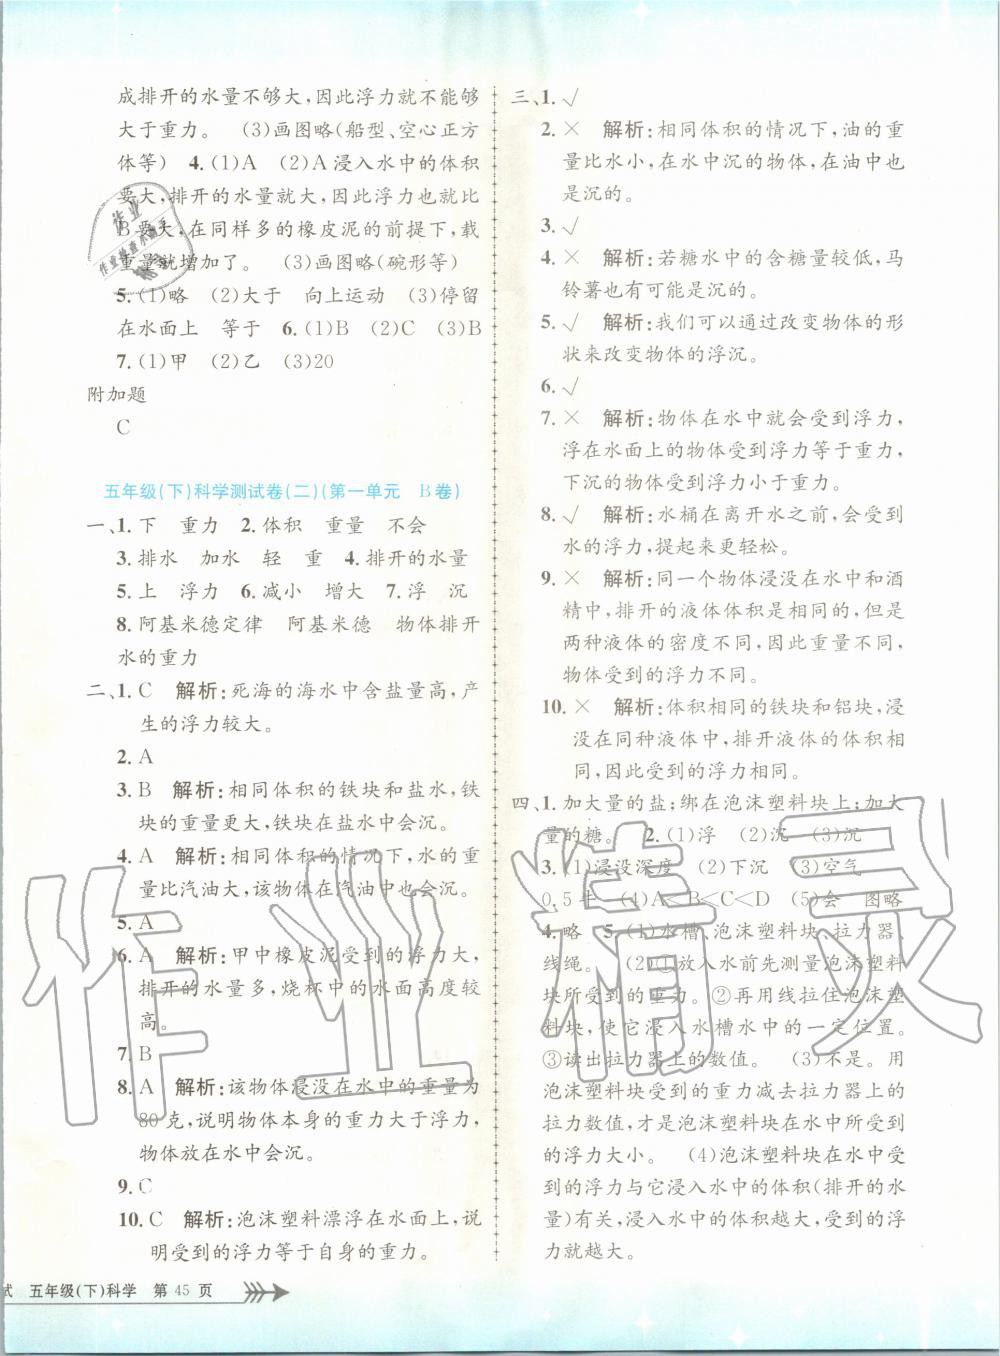 成排开的水量不够大,因此浮力就不能够
大于重力。 (3)画图略(船型、空心正方
体等) 4.(1)A (2)A浸入水中的体积
要大,排开的水量就大,因此浮力也就比
B要大,在同样多的橡皮泥的前提下,载
重量就增加了。 (3)画图略(碗形等)
5.(1)略 (2)大于 向上运动 (3)停留
在水面上 等于 6.(1)B (2)C (3)B
7.(1)甲 (2)乙 (3)20
附加题
C
五年级(下)科学测试卷(二)(第一单元 B卷)
一、1.下 重力 2.体积 重量 不会
3.排水 加水 轻 重 4.排开的水量
5.上 浮力 6.减小 增大 7.浮 沉
8.阿基米德定律 阿基米德 物体排开
水的重力
二、1.C 解析:死海的海水中含盐量高,产
生的浮力较大。
2.A
3.B 解析:相同体积的铁块和盐水,铁
块的重量更大,铁块在盐水中会沉。
4.A 解析:相同体积的情况下,水的重
量比汽油大,该物体在汽油中也会沉。
5.A
6.A 解析:甲中橡皮泥受到的浮力大,
排开的水量多,烧杯中的水面高度较
高。
7.B
8.A 解析:该物体浸没在水中的重量为
80克,说明物体本身的重力大于浮力,
物体放在水中会沉。
9.C
10.C 解析:泡沫塑料漂浮在水面上,说
明受到的浮力等于自身的重力。
三、1.√
2.× 解析:相同体积的情况下,油的重
量比水小,在水中沉的物体,在油中也
是沉的。
3.√
4.× 解析:若糖水中的含糖量较低,马
铃薯也有可能是沉的。
5.√ 解析:我们可以通过改变物体的形
状来改变物体的浮沉。
6.√
7.× 解析:物体在水中就会受到浮力,
浮在水面上的物体受到浮力等于重力,
下沉的物体受到浮力小于重力。
8.√ 解析:水桶在离开水之前,会受到
水的浮力,提起来更轻松。
9.× 解析:同一个物体浸没在水中和酒
精中,排开的液体体积是相同的,但是
两种液体的密度不同,因此重量不同,
物体受到的浮力不同。
10.× 解析:体积相同的铁块和铝块,浸
没在同种液体中,排开液体的体积相
同,因此受到的浮力相同。
四、1.加大量的盐;绑在泡沫塑料块上;加大
量的糖。 2.(1)浮 (2)沉 (3)沉
3.(1)浸没深度 (2)下沉 (3)空气
0.5卡 (4)A<B<C<D (5)会 图略
4.略 5.(1)水槽、泡沫塑料块、拉力器、
线绳。 (2)①放入水前先测量泡沫塑料
块所受到的重力。②再用线拉住泡沫塑
料块,使它浸入水槽水中的一定位置。
③读出拉力器上的数值。 (3)不是。用
泡沫塑料块受到的重力减去拉力器上的
拉力数值,才是泡沫塑料块在水中所受到
的浮力大小。 (4)泡沫塑料块在水中受到
的浮力与它浸入水中的体积(排开的水
量)有关,浸入水中的体积越大,受到的浮
力就越大。
试 五年级(下)科学 第45页
作业精灵
作业
作业检查小助手